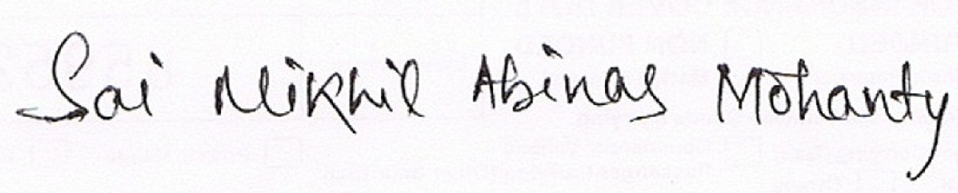 Sai Nikhil Abinas Mohanty